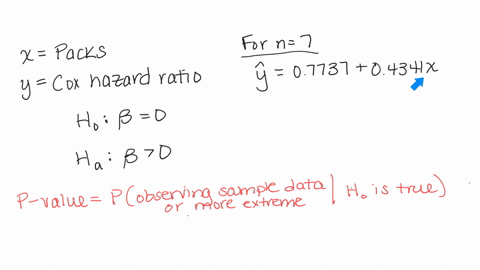 x = Packs
y = Cox hazard ratio
H₀: β = 0
Hₐ: β > 0
For n = 7
ŷ = 0.7737 + 0.4341x
P-value = P(observing sample data or more extreme | H₀ is true)